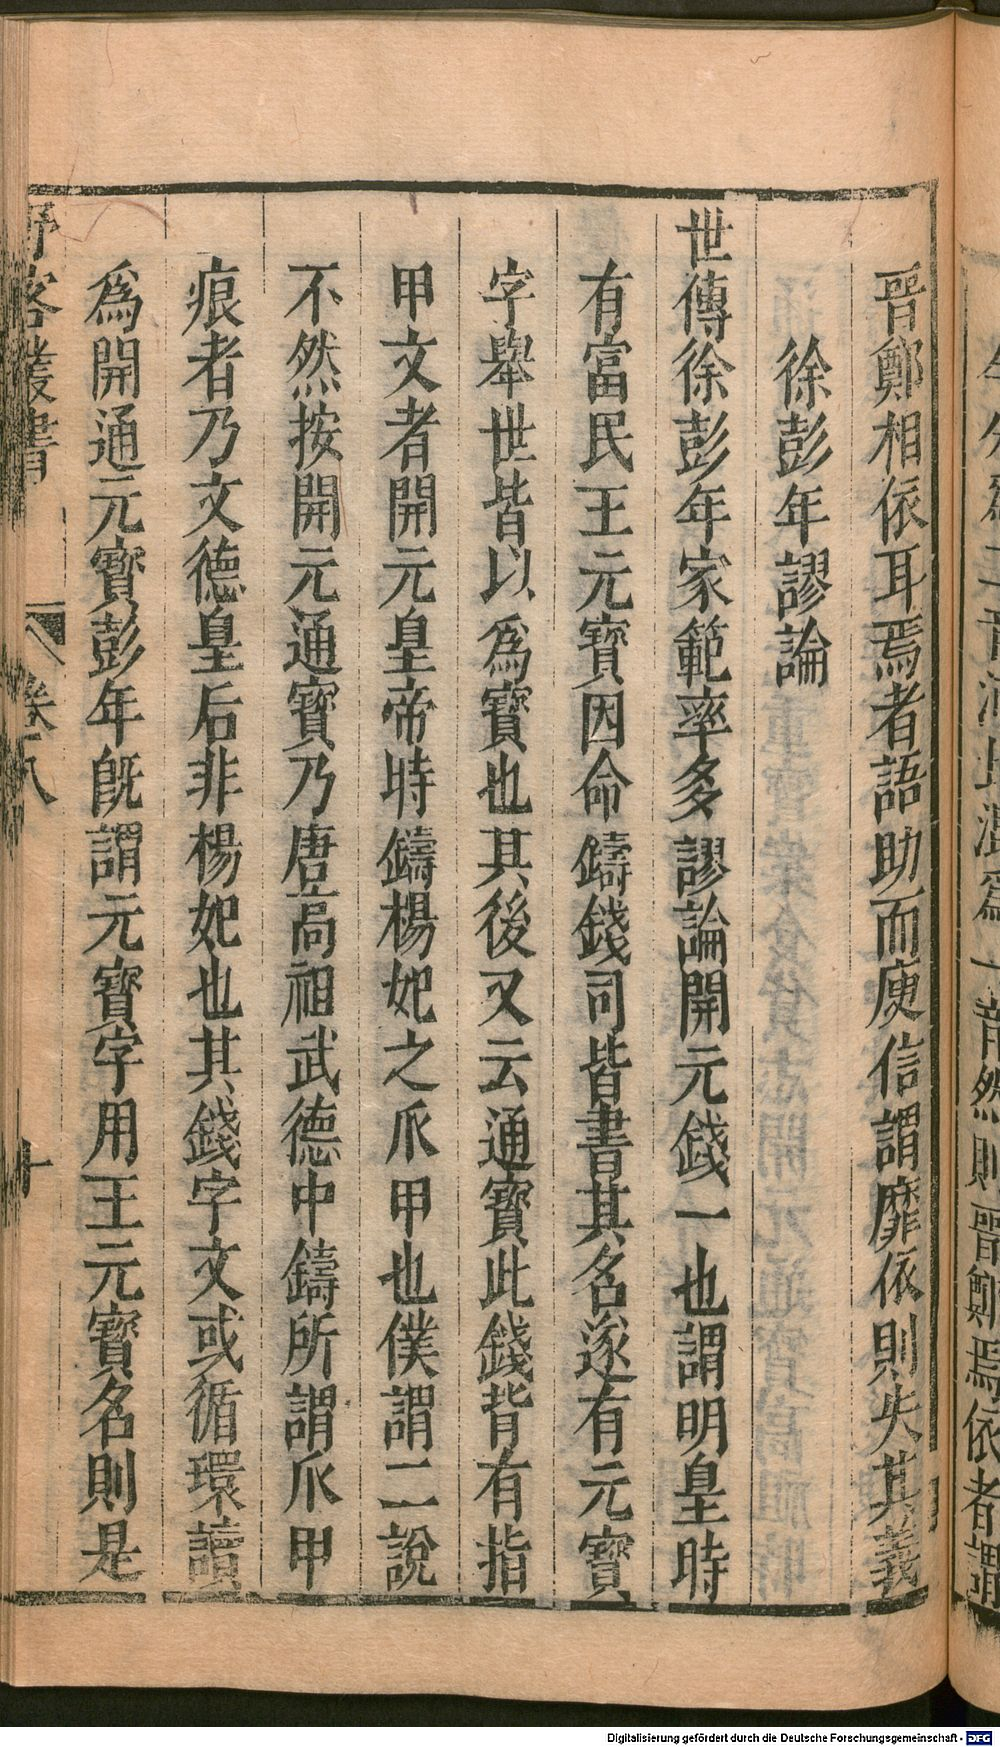 晉鄭相依耳焉者語助而庾信謂靡依則失其義
徐彭年謬論
世傳徐彭年家範率多謬論開元錢一也謂明皇時
有富民王元寶因命鑄錢司皆書其名遂有元寶
字舉世皆以為寶也其後又云通寶此錢背有指
甲文者開元皇帝時鑄楊妃之爪甲也僕謂二說
不然按開元通寶乃唐高祖武德中鑄所謂爪甲
痕者乃文德皇后非楊妃也其錢字文或循環讀
為開通元寶彭年旣謂元寶字用王元寶名則是
野客叢書
卷八
十
Digitalisierung gefördert durch die Deutsche Forschungsgemeinschaft - DFG